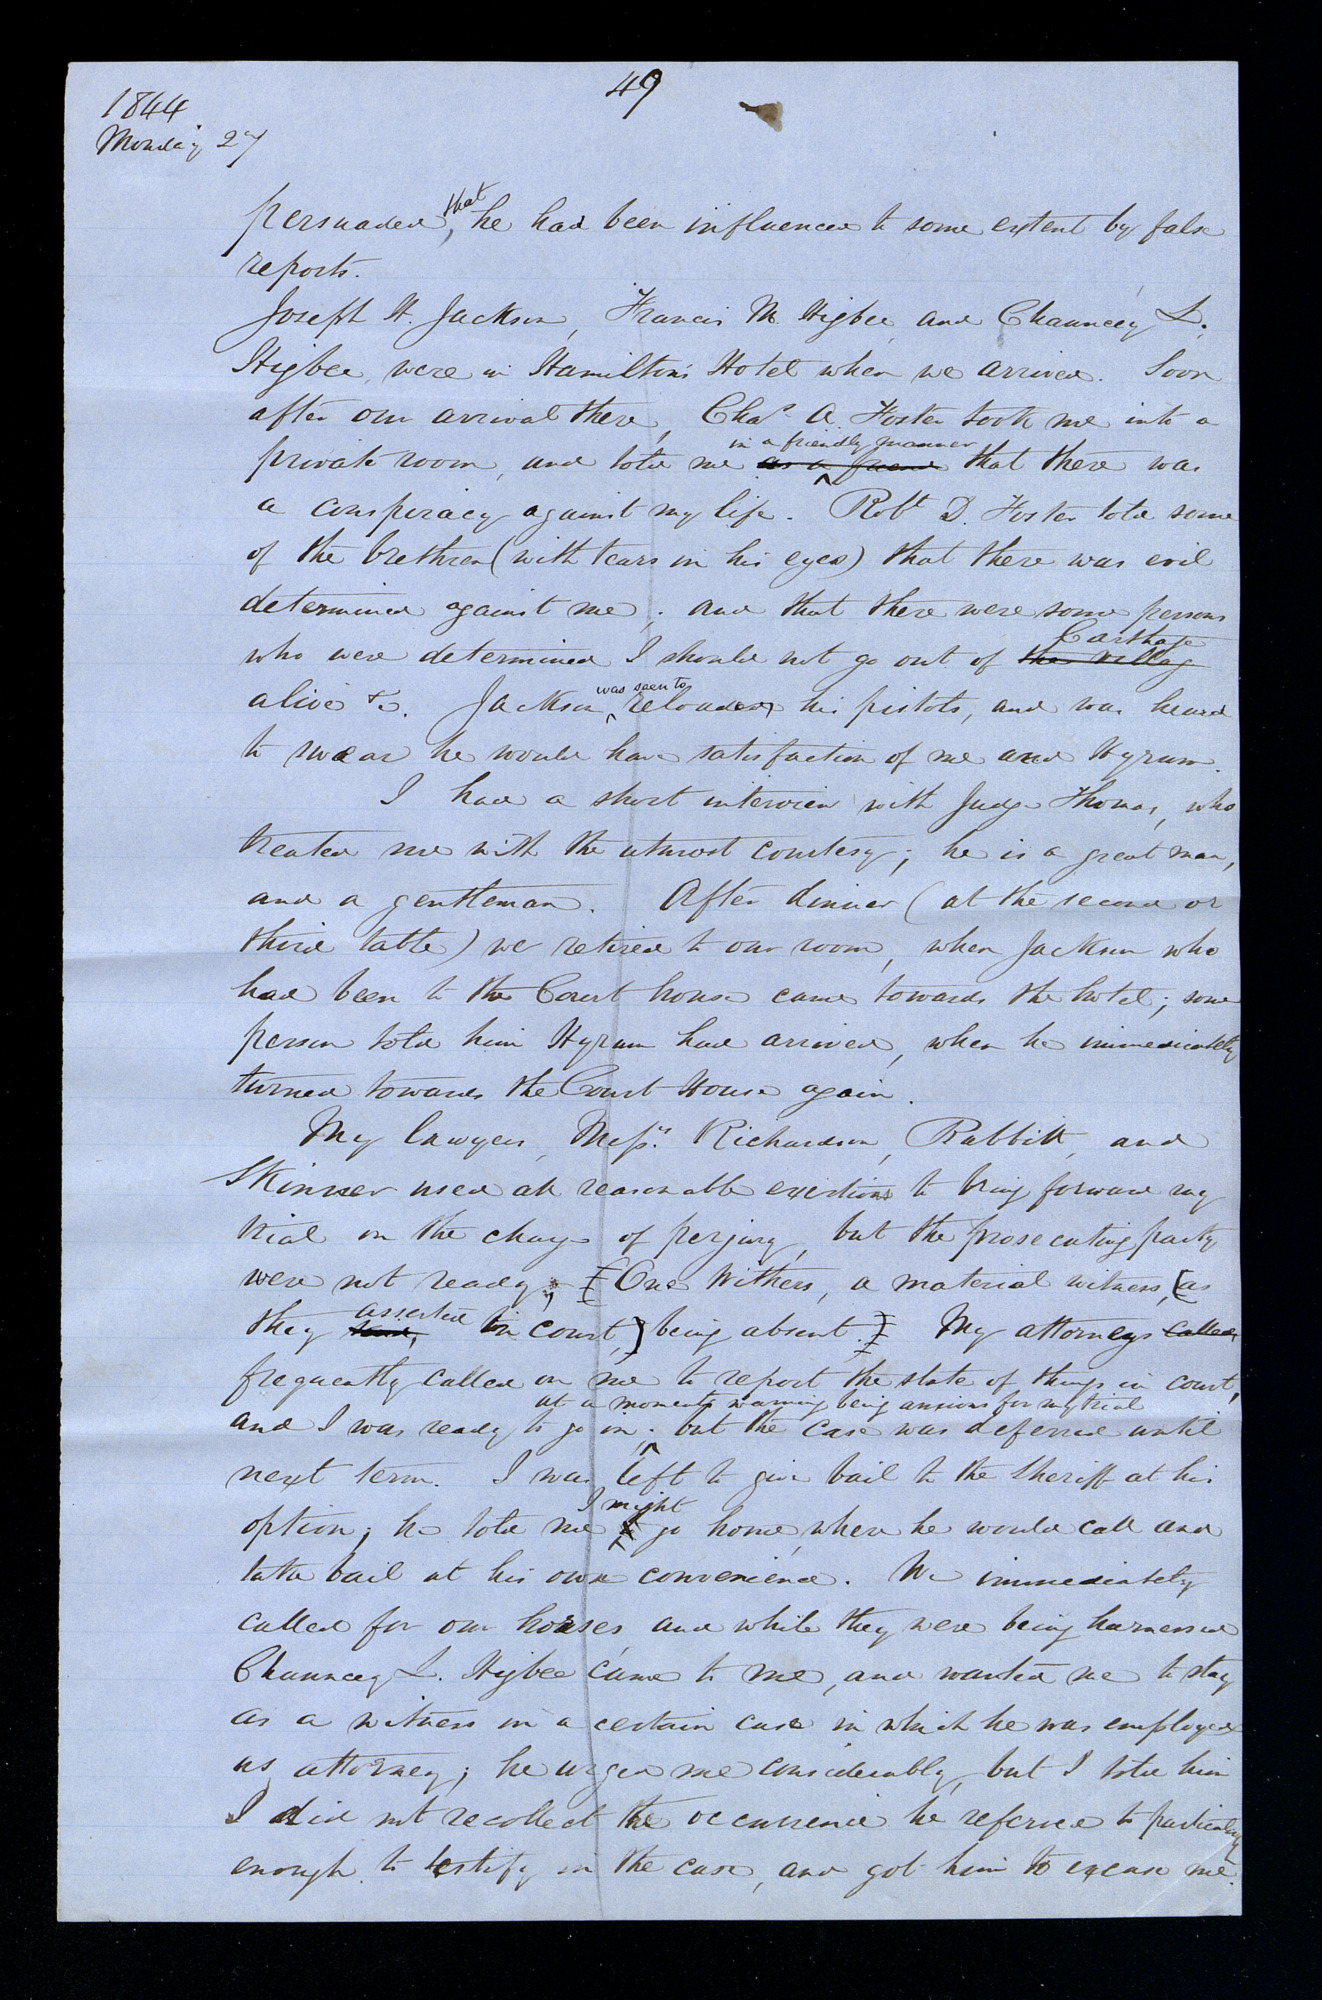 49
1844
Monday 27
persuaded, that he had been influenced to some extent by false
reports.
Joseph H. Jackson, Francis M. Higbee, and Chauncey L.
Higbee, were in Hamilton's Hotel when we arrived. Soon
after our arrival there, Chas. A. Foster took me into a
in a friendly manner
private room, and told me as a friend that there was
a conspiracy against my life. Robt. D. Foster told some
of the brethren (with tears in his eyes) that there was evil
determined against me; and that there were some persons
Carthage
who were determined I should not go out of the village
was seen to
alive &c. Jackson reloaded his pistols, and was heard
to swear he would have satisfaction of me and Hyrum.
I had a short interview with Judge Thomas, who
treated me with the utmost courtesy; he is a great man,
and a gentleman. After dinner (at the second or
third table) we retired to our room, when Jackson who
had been to the Court house came towards the hotel; some
person told him Hyrum had arrived, when he immediately
turned towards the Court House again.
My lawyers, Messrs. Richardson, Babbitt, and
Skinner used all reasonable exertions to bring forward my
trial on the charge of perjury, but the prosecuting party
were not ready; [One Withers, a material witness, [as
asserted
they said, in court,) being absent.] My attorneys called
frequently called on me to report the state of things in court,
at a moments warning being anxious for my trial
and I was ready to go in; but the case was deferred until
next term. I was left to give bail to the Sheriff at his
I might
option; he told me go home, where he would call and
take bail at his own convenience. We immediately
called for our horses, and while they were being harnessed
Chauncey L. Higbee came to me, and wanted me to stay
as a witness in a certain case in which he was employed
as attorney; he urged me considerably, but I told him
I did not recollect the occurrence he referred to particularly
enough to testify in the case, and got him to excuse me.